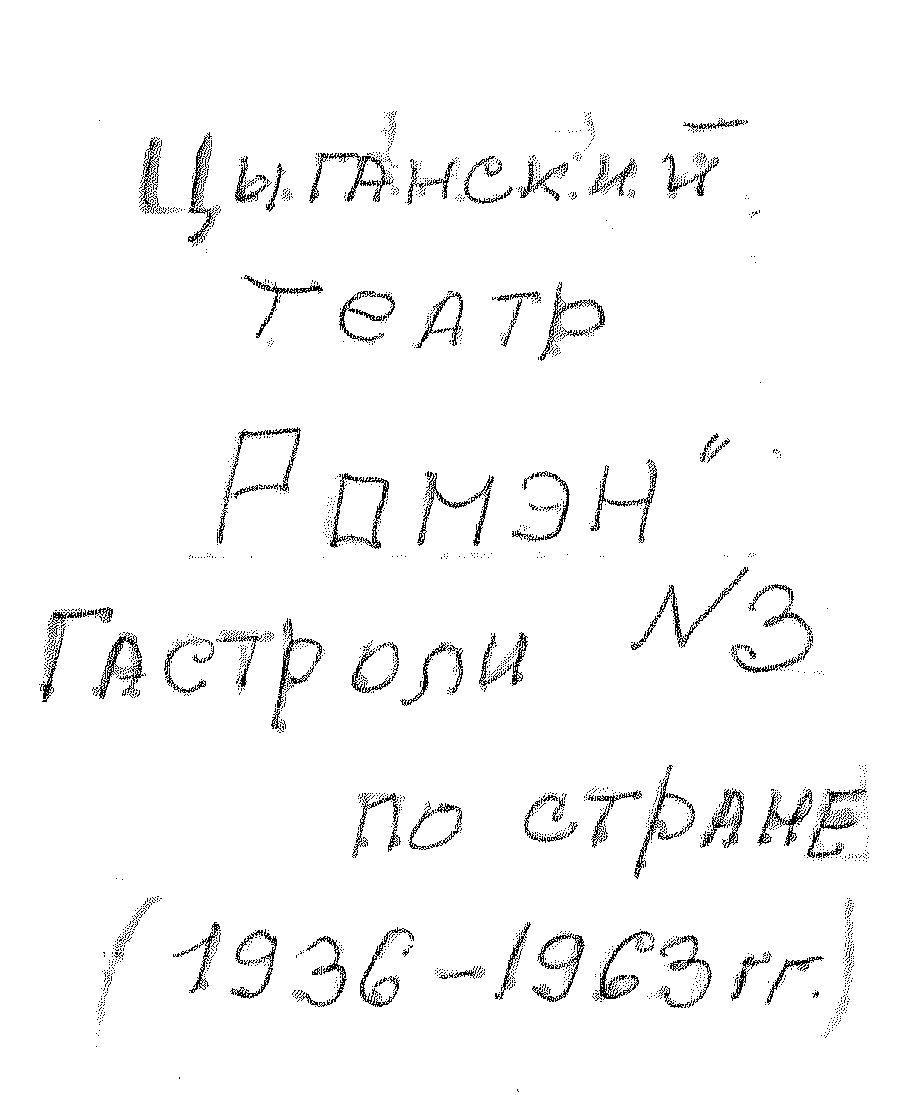 Цыганский
театр
Ромэн"
Гастроли N3
по стране
(1936-1963 гг.)